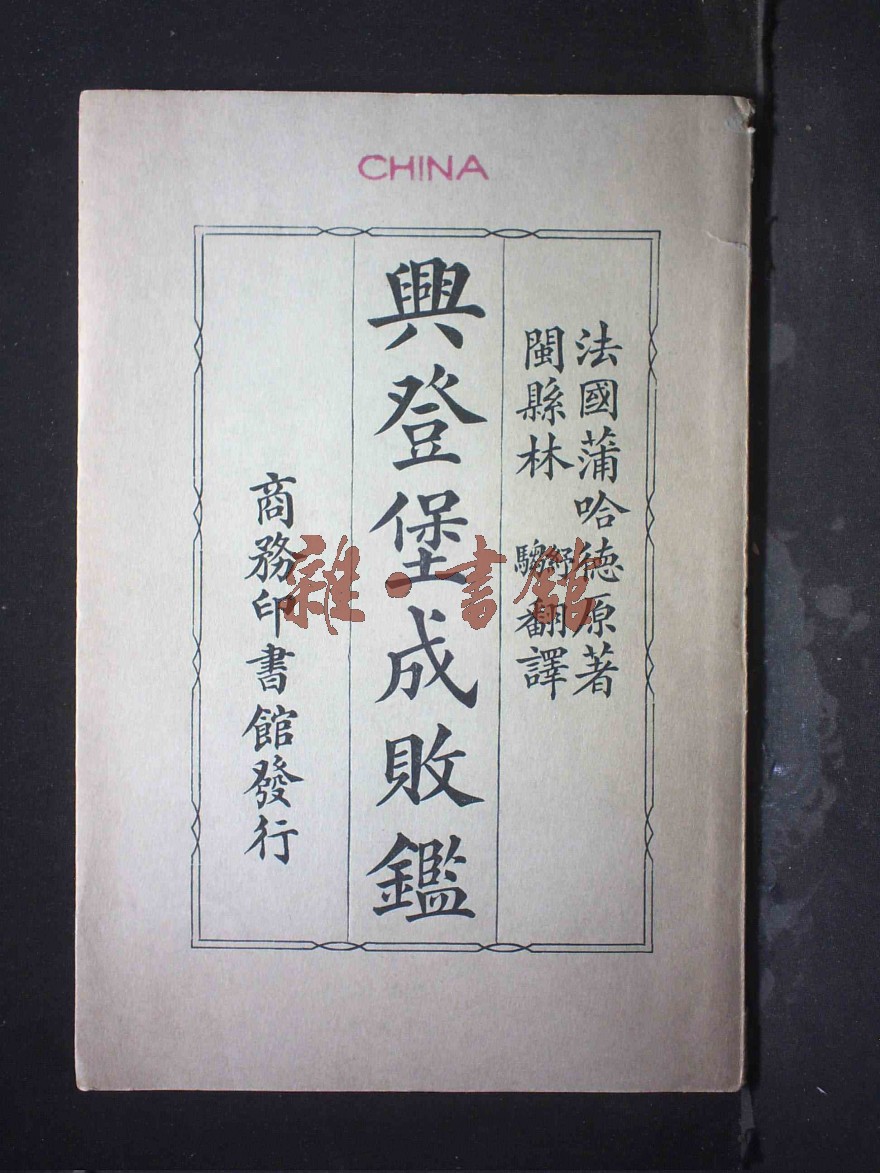 CHINA
法國蒲哈德原著
閩縣林紓騶翻譯
興登堡成敗鑑
商務印書館發行
雜·書館